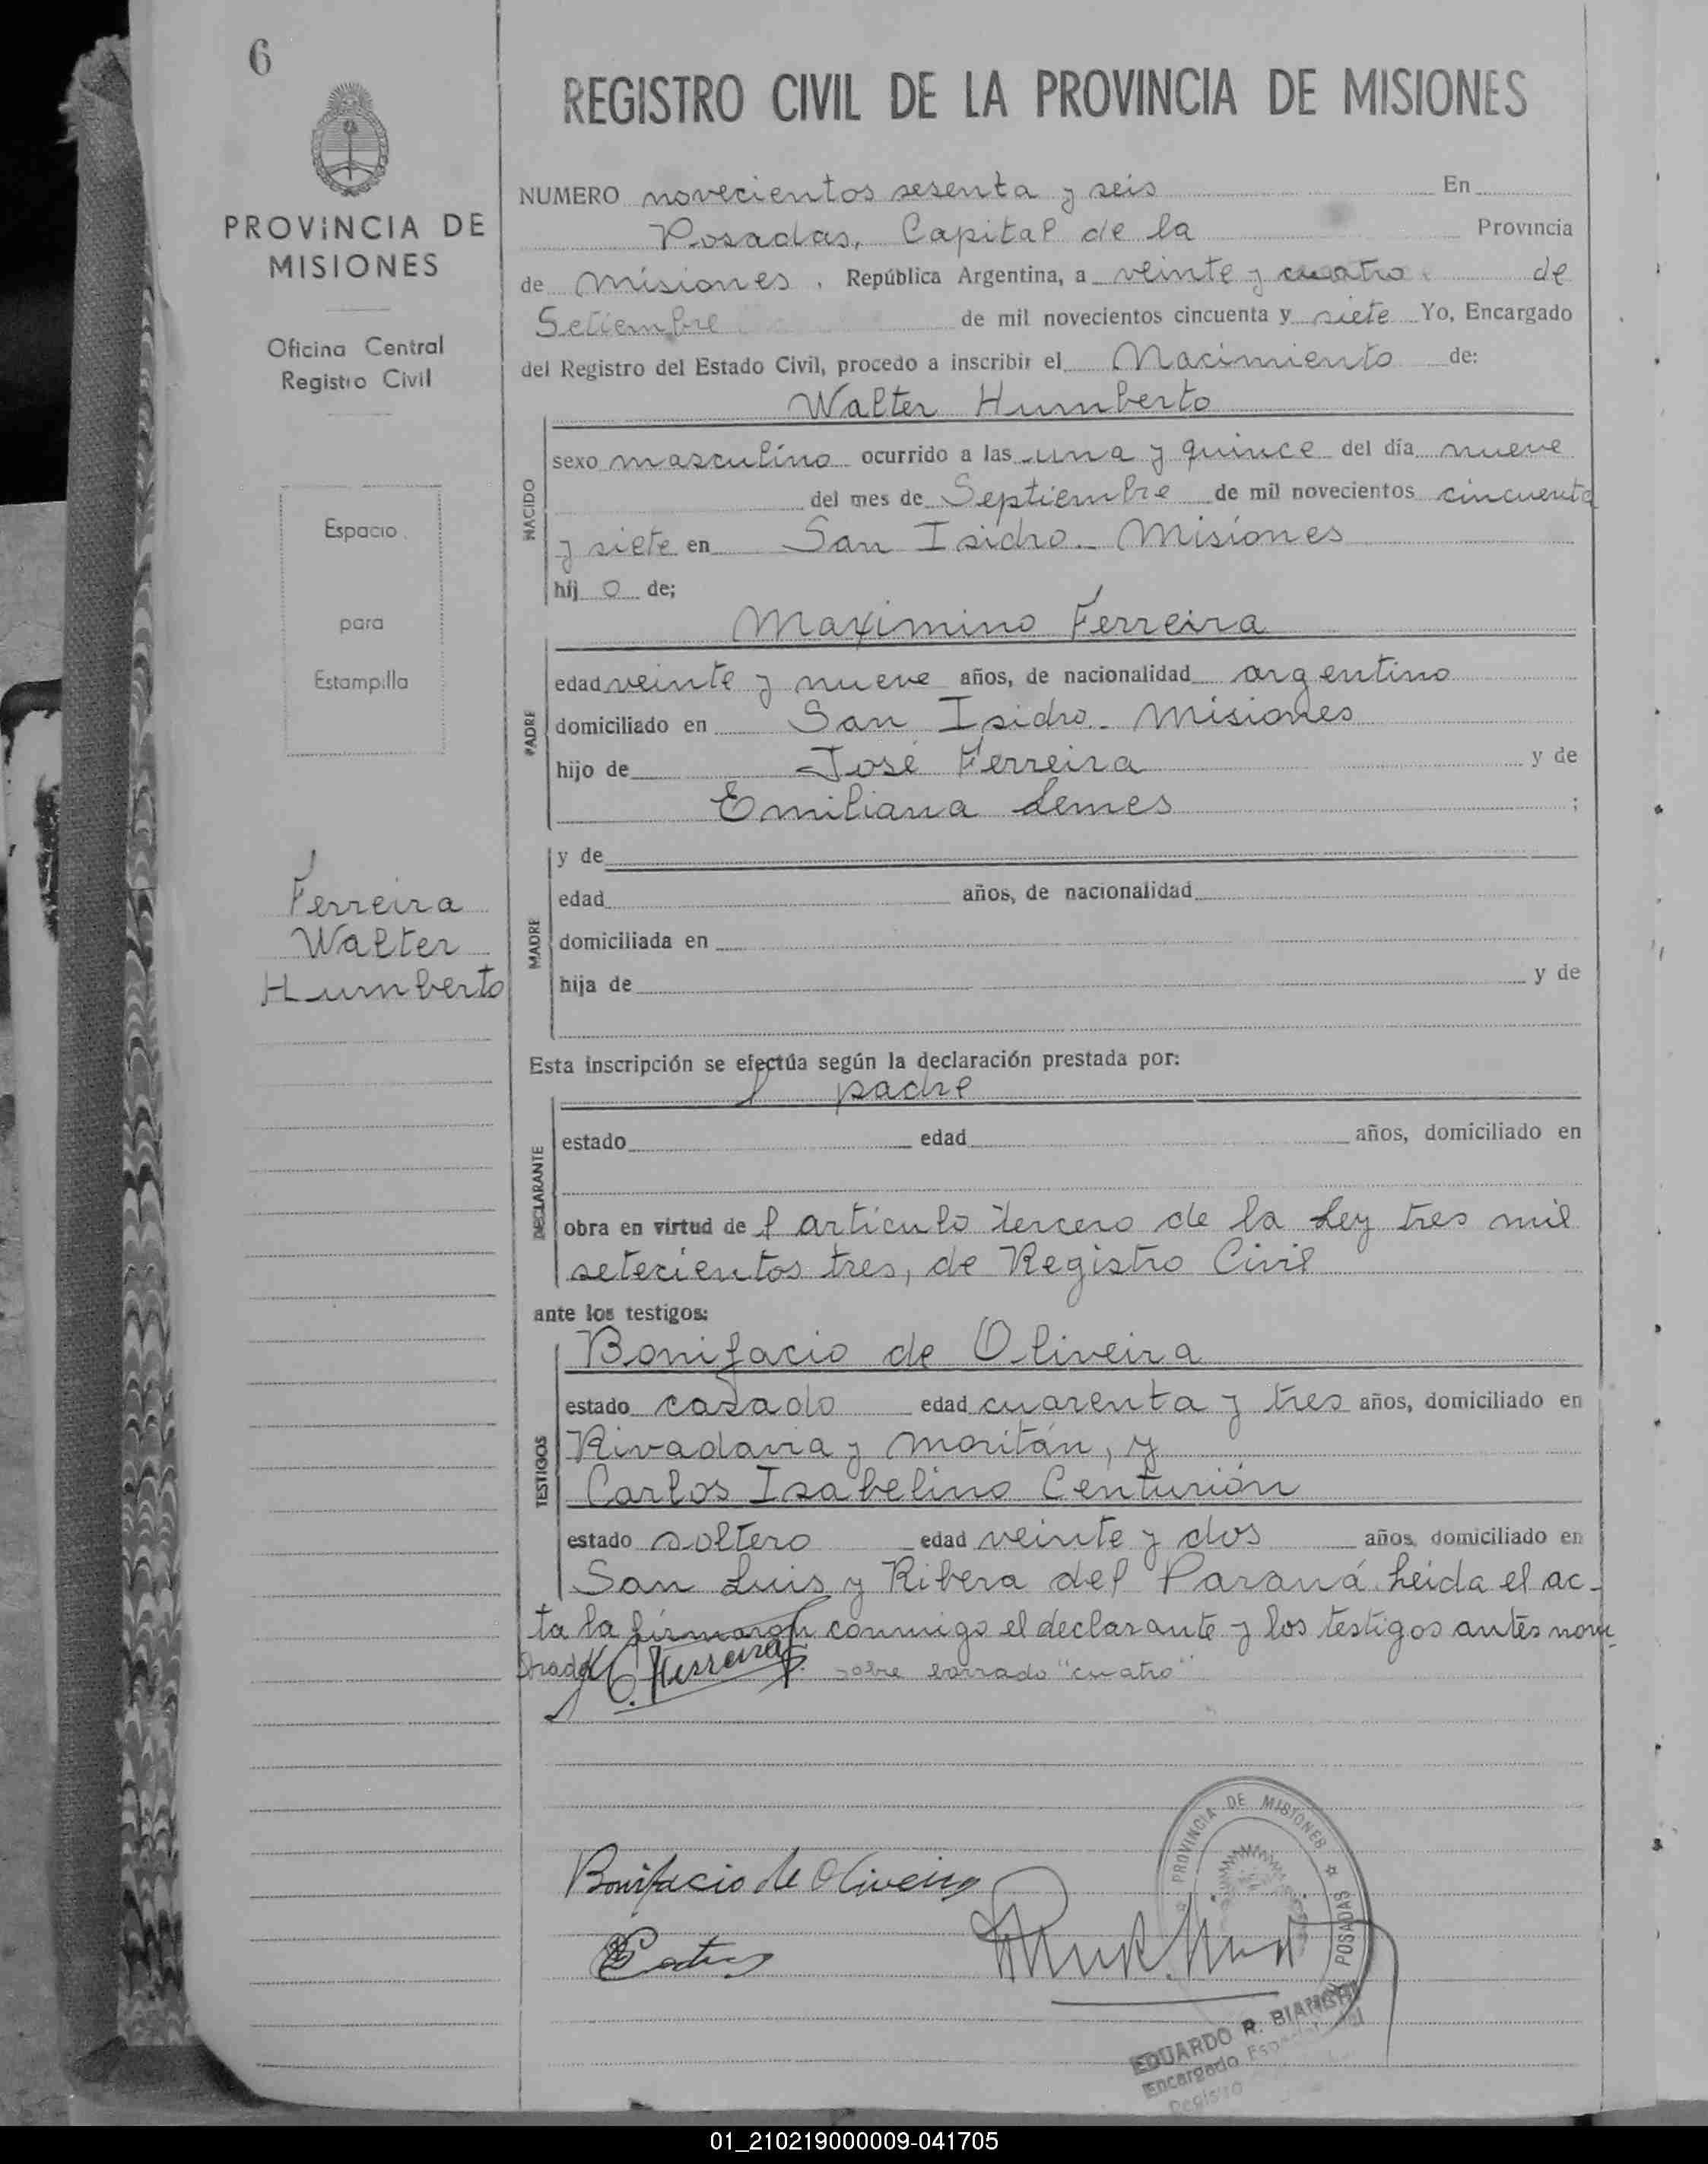 6
PROVINCIA DE
MISIONES
Oficina Central
Registro Civil
Espacio
para
Estampilla
Ferreira
Walter
Humberto
REGISTRO CIVIL DE LA PROVINCIA DE MISIONES
NUMERO novecientos sesenta y seis En
Posadas, Capital de la Provincia
de Misiones, República Argentina, a veinte y cuatro de
Setiembre de mil novecientos cincuenta y siete Yo, Encargado
del Registro del Estado Civil, procedo a inscribir el Nacimiento de:
Walter Humberto
NACIDO
sexo masculino ocurrido a las una y quince del día nueve
del mes de Septiembre de mil novecientos cincuenta
y siete en San Isidro - Misiones
hij o de;
Maximino Ferreira
PADRE
edad veinte y nueve años, de nacionalidad argentino
domiciliado en San Isidro - Misiones
hijo de José Ferreira y de
Emiliana Lemes ;
MADRE
y de
edad años, de nacionalidad
domiciliada en
hija de y de
Esta inscripción se efectúa según la declaración prestada por:
l padre
DECLARANTE
estado edad años, domiciliado en
obra en virtud de l articulo tercero de la Ley tres mil
setecientos tres, de Registro Civil
ante los testigos:
Bonifacio de Oliveira
TESTIGOS
estado casado edad cuarenta y tres años, domiciliado en
Rivadavia y Moritán, y
Carlos Isabelino Centurión
estado soltero edad veinte y dos años, domiciliado en
San Luis y Ribera del Paraná. Leida el ac-
ta la firmaron conmigo el declarante y los testigos antes nom-
brados Ferreira sobre borrado "cuatro"
Bonifacio de Oliveira
PROVINCIA DE MISIONES
POSADAS
EDUARDO R. BIANCHI
Encargado
Registro
01_210219000009-041705